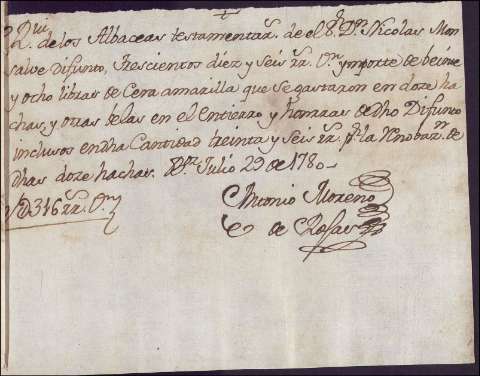 de los Albaceas testamentar.s de el S.r D.n Nicolas Mon
salve Difunto, trescientos diez y seis rr.s v.on ymporte de beinte
y ocho libras de Cera amarilla que se gastaron en doze ha
chas, y otras belas en el Entierro y honrras de dho Difunto
inclusos en dha Cantidad treinta y seis rr.s p.r la de
dhas doze hachas. Julio 29 de 1780
316 rr.s v.on
Antonio Moreno
de Rosas